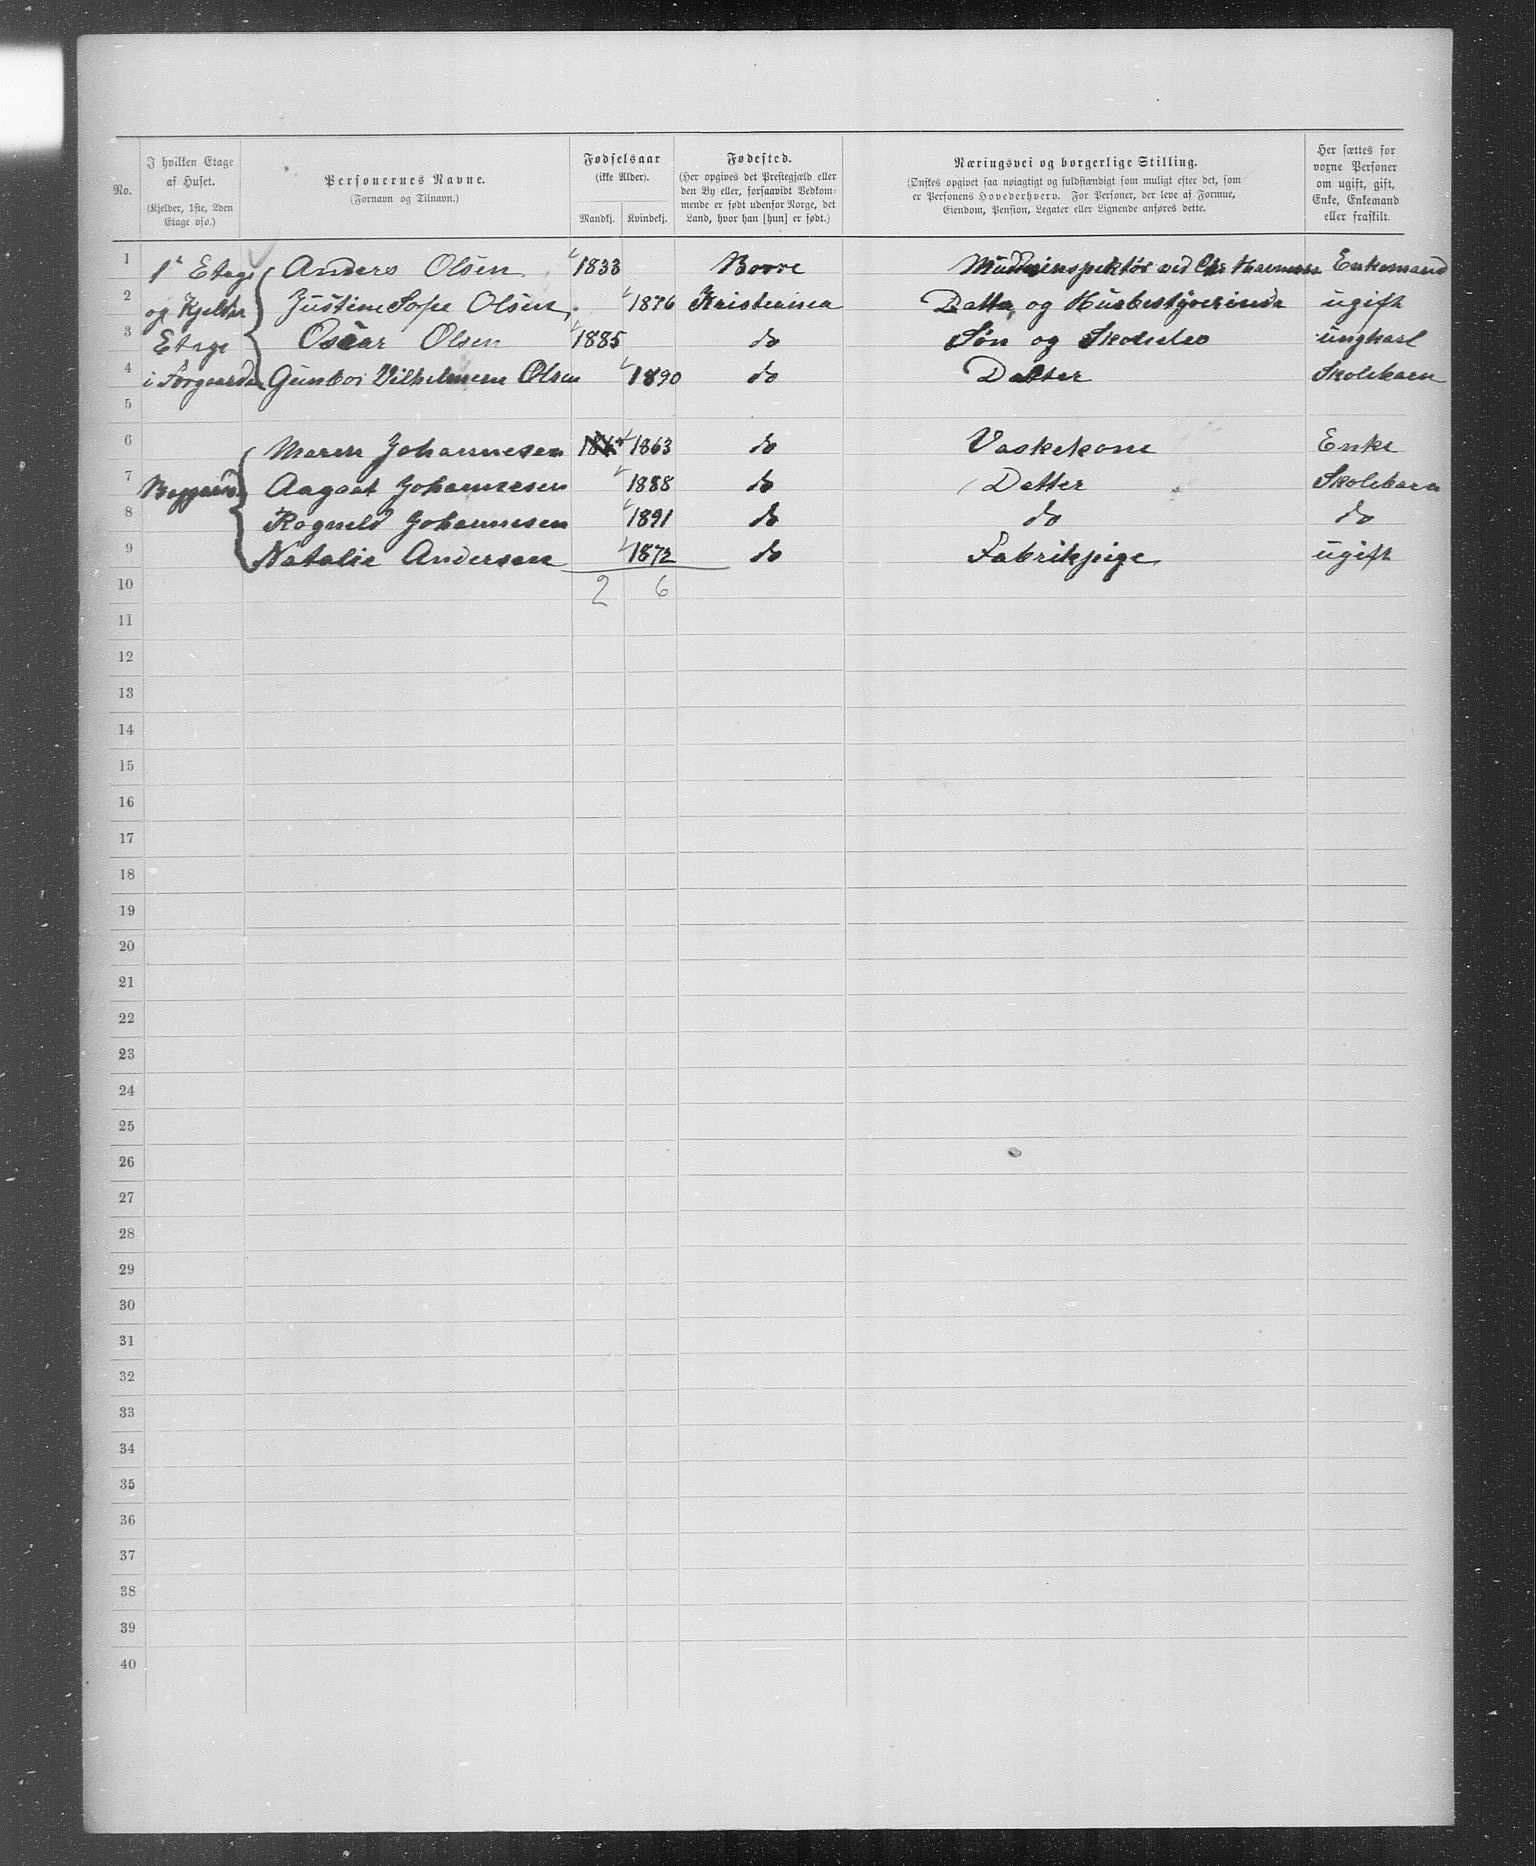 No.
I hvilken Etage af Huset.
(Kjelder, 1ste, 2den Etage osv.)
Personernes Navne.
(Fornavn og Tilnavn.)
Fødselsaar
(ikke Alder).
Mandkj. Kvindekj.
Fødested.
(Her opgives det Præstegjæld eller
den By eller, forsaavidt Vedkom-
mende er født udenfor Norge, det
Land, hvor han [hun] er født.)
Næringsvei og borgerlige Stilling.
(Ønskes opgivet saa nøiagtigt og fuldstændigt som muligt efter det, som
er Personens Hovederhverv. For Personer, der leve af Formue,
Eiendom, Pension, Legater eller Lignende anføres dette.
Her sættes for
voxne Personer
om ugift, gift,
Enke, Enkemand
eller fraskilt.
1 1ste Etage Anders Olsen 1833 Borre Mudderinspektør ved Chr Havnevæsen Enkemand
2 og Kjelder Justine Sofie Olsen 1876 Kristiania Datter og Husbestyrerinde ugift
3 Etage Oscar Olsen 1885 do Søn og ungkarl
4 i Forgaarden Gunbor Vilhelmine Olsen 1890 do Datter Skolebarn
5
6 Maren Johannesen 1863 do Vaskekone Enke
7 Baggaard Aagoat Johannesen 1888 do Datter Skolebarn
8 Ragnild Johannesen 1891 do do do
9 Natalia Andersen 1872 do Fabrikpige ugift
10 2 6
11
12
13
14
15
16
17
18
19
20
21
22
23
24
25
26
27
28
29
30
31
32
33
34
35
36
37
38
39
40